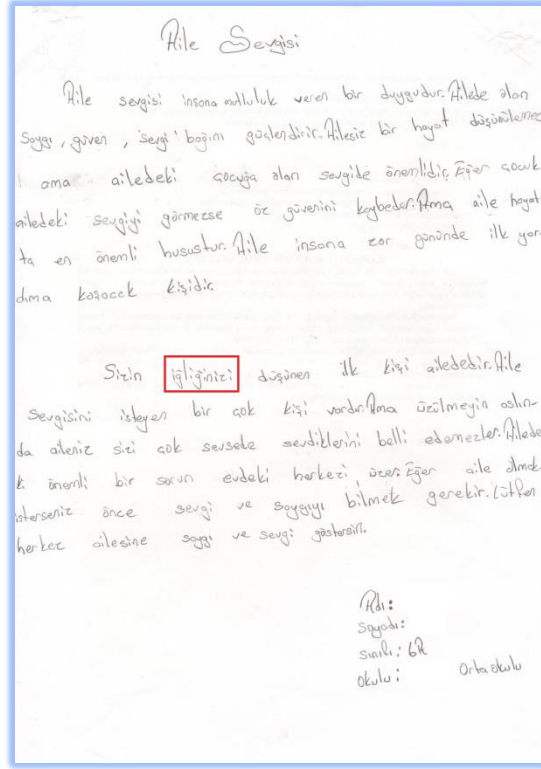 Aile Sevgisi
Aile sevgisi insana mutluluk veren bir duygudur. Ailede olan
saygı, güven, sevgi bağını güçlendirir. Ailesiz bir hayat düşünülemez
ama ailedeki çocuğa olan sevgide önemlidir. Eğer çocuk
ailedeki sevgiyi görmezse öz güvenini kaybeder. Ama aile hayat
ta en önemli husustur. Aile insana zor gününde ilk yar
dıma koşacak kişidir.
Sizin iğliğinizi düşünen ilk kişi ailededir. Aile
sevgisini isteyen bir çok kişi vardır. Ama üzülmeyin aslın-
da aileniz sizi çok sevsede sevdiklerini belli edemezler. Ailede
ki önemli bir sorun evdeki herkezi üzer. Eğer aile olmak
isterseniz önce sevgi ve saygıyı bilmek gerekir. Lütfen
herkez ailesine saygı ve sevgi göstersin.
Adı:
Soyadı:
Sınıfı: 6A
Okulu: Ortaokulu